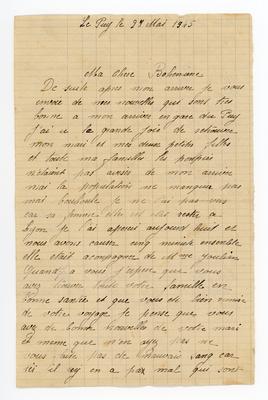 Le Puy le 31 Mai 1945
Ma Chere Bohemienne
De suite apres mon arrivée je vous
envoie de mes nouvelles qui sont très
bonne a mon arrivée en gare du Puy
j'ai u la grande joie de retrouver
mon mari et mes deux petites filles
et toute ma famille les pompies
n'etaient pas avisés de mon arrivée
mai la population ne manquai pas
mai je ne l'ai pas vus
car sa femme elle est resté a
Lyon je l'ai aperçu aujourd huit et
nous avons causer cinq minute ensemble
elle etait acompagner de Mme
Quand a vous j'espère que vous
avez trouver toute votre famille en
bonne santée et que vous de bien
de votre voyage je pense que vous
avez de bonne nouvelles de votre mari
et meme que n'en ayez pas ne
vous faite pas de mauvais sang car
ici il ny en a pas mal qui sont